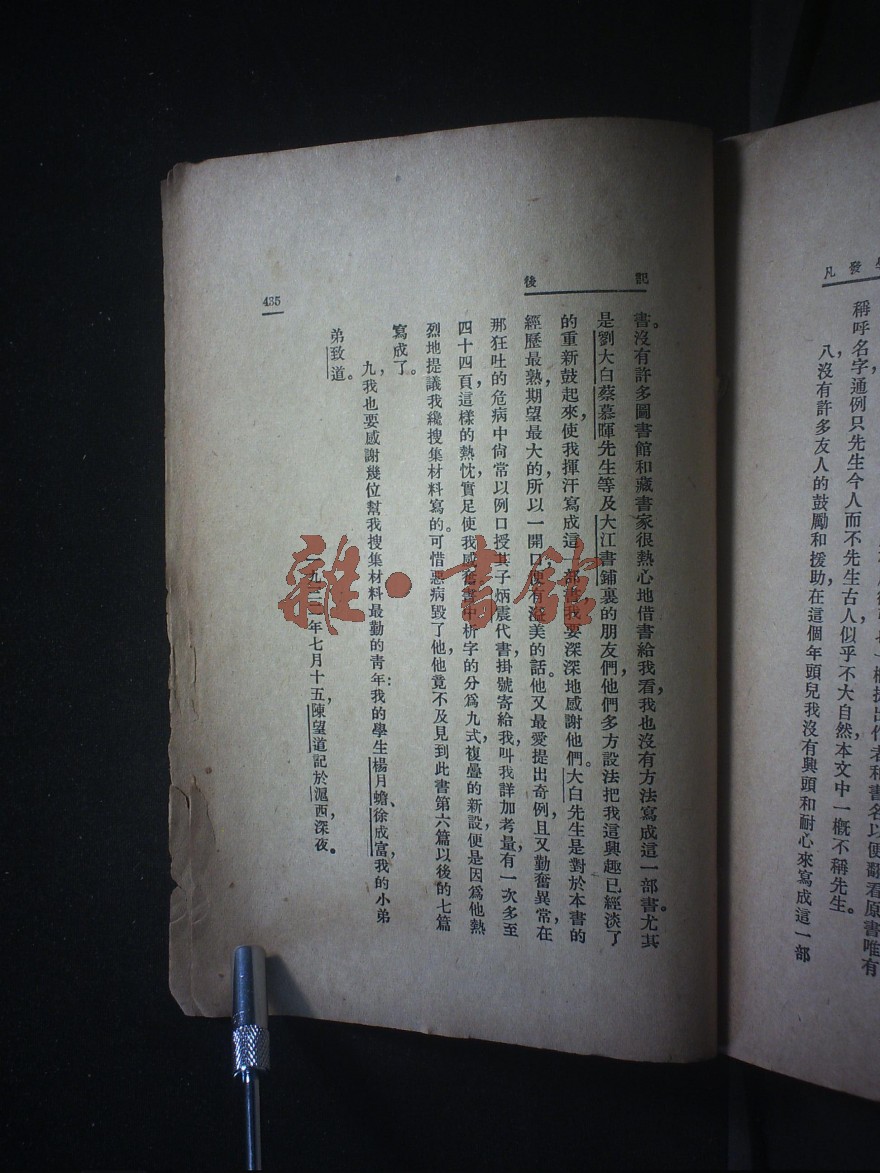 凡發
稱呼名字，通例只先生今人而不先生古人，似乎不大自然，本文中一概不稱先生。
八，沒有許多友人的鼓勵和援助，在這個年頭兒我沒有興頭和耐心來寫成這一部
後記
書。沒有許多圖書館和藏書家很熱心地借書給我看，我也沒有方法寫成這一部書。尤其
是劉大白蔡慕暉先生等及大江書鋪裏的朋友們，他們多方設法把我這興趣已經淡了
的重新鼓起來，使我揮汗寫成這一部書，我要深深地感謝他們。大白先生是對於本書的
經歷最熟，期望最大的，所以一開口便有溢美的話。他又最愛提出奇例，且又勤奮異常，在
那狂吐的危病中尙常以例口授其子炳震代書，掛號寄給我，叫我詳加考量，有一次多至
四十四頁，這樣的熱忱實足使我感舊書中析字的分爲九式，複疊的新設，便是因爲他熱
烈地提議，我纔搜集材料寫的。可惜惡病毀了他，他竟不及見到此書第六篇以後的七篇
寫成了。
九，我也要感謝幾位幫我搜集材料最勤的青年：我的學生楊月蟾、徐成富，我的小弟
弟致道。
一九三二年七月十五，陳望道記於滬西，深夜。
435
雜·書館